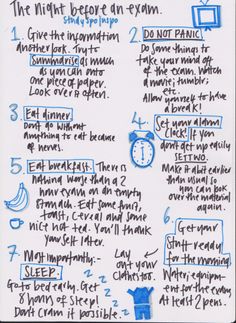 The night before an exam.
StudySpo|nspo
1. Give the information
another look. Try to
summarise as much
as you can onto
one piece of paper.
Look over it often.
2. DO NOT PANIC.
Do some things to
take your mind off
of the exam. Watch
a movie, tumblr,
etc.
Allow yourself to have
a break!
3. Eat dinner.
Dont go without
anything to eat because
of nerves.
4. Set your alarm
Clock! If you
dont get up easily
SET TWO.
Make it abit earlier
than usual so
you can look
over the material
again.
5. Eat breakfast. There is
nothing worse than a 2
hour exam on an empty
stomach. Eat some fruit,
toast, cereal and some
nice hot tea. You'll thank
yourself later.
6. Get your
stuff ready
for the morning.
Water, equip-
ment for the exam
At least 2 pens.
7. Most importantly:-
SLEEP.
Go to bed early. Get
8 hours of sleep!
Dont cram if possible.
Lay out your
clothes too.
z z z z z